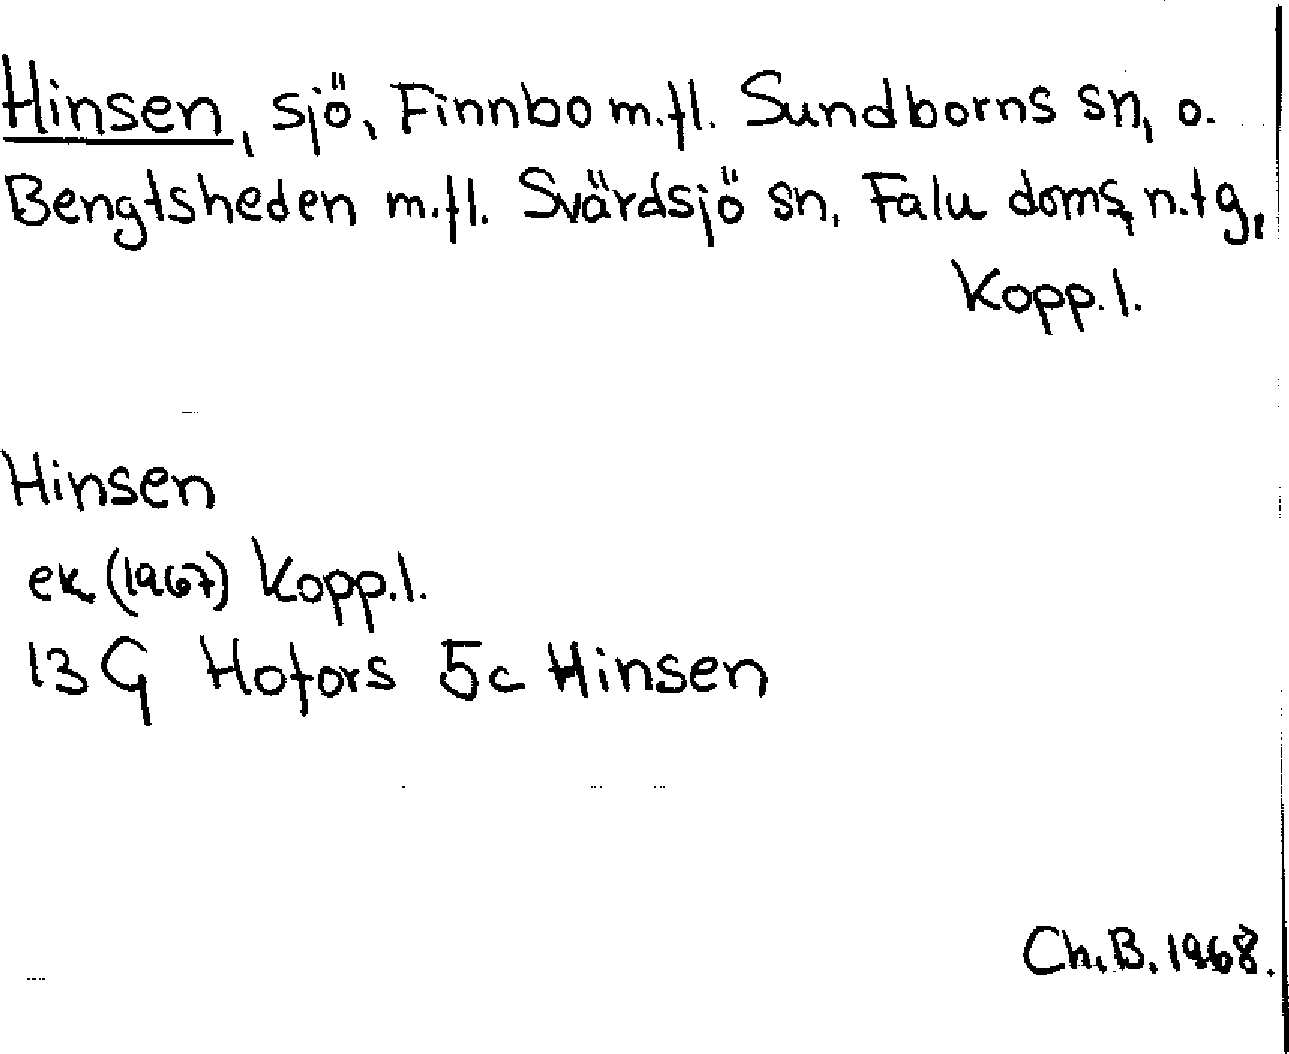 Hinsen, sjö, Finnbo m.fl. Sundborns sn, o.
Bengtsheden m.fl. Svärdsjö sn, Falu doms. n.tg,
Kopp.l.
Hinsen
ek (1967) Kopp.l.
13 G Hofors 5c Hinsen
Ch.B. 1968.